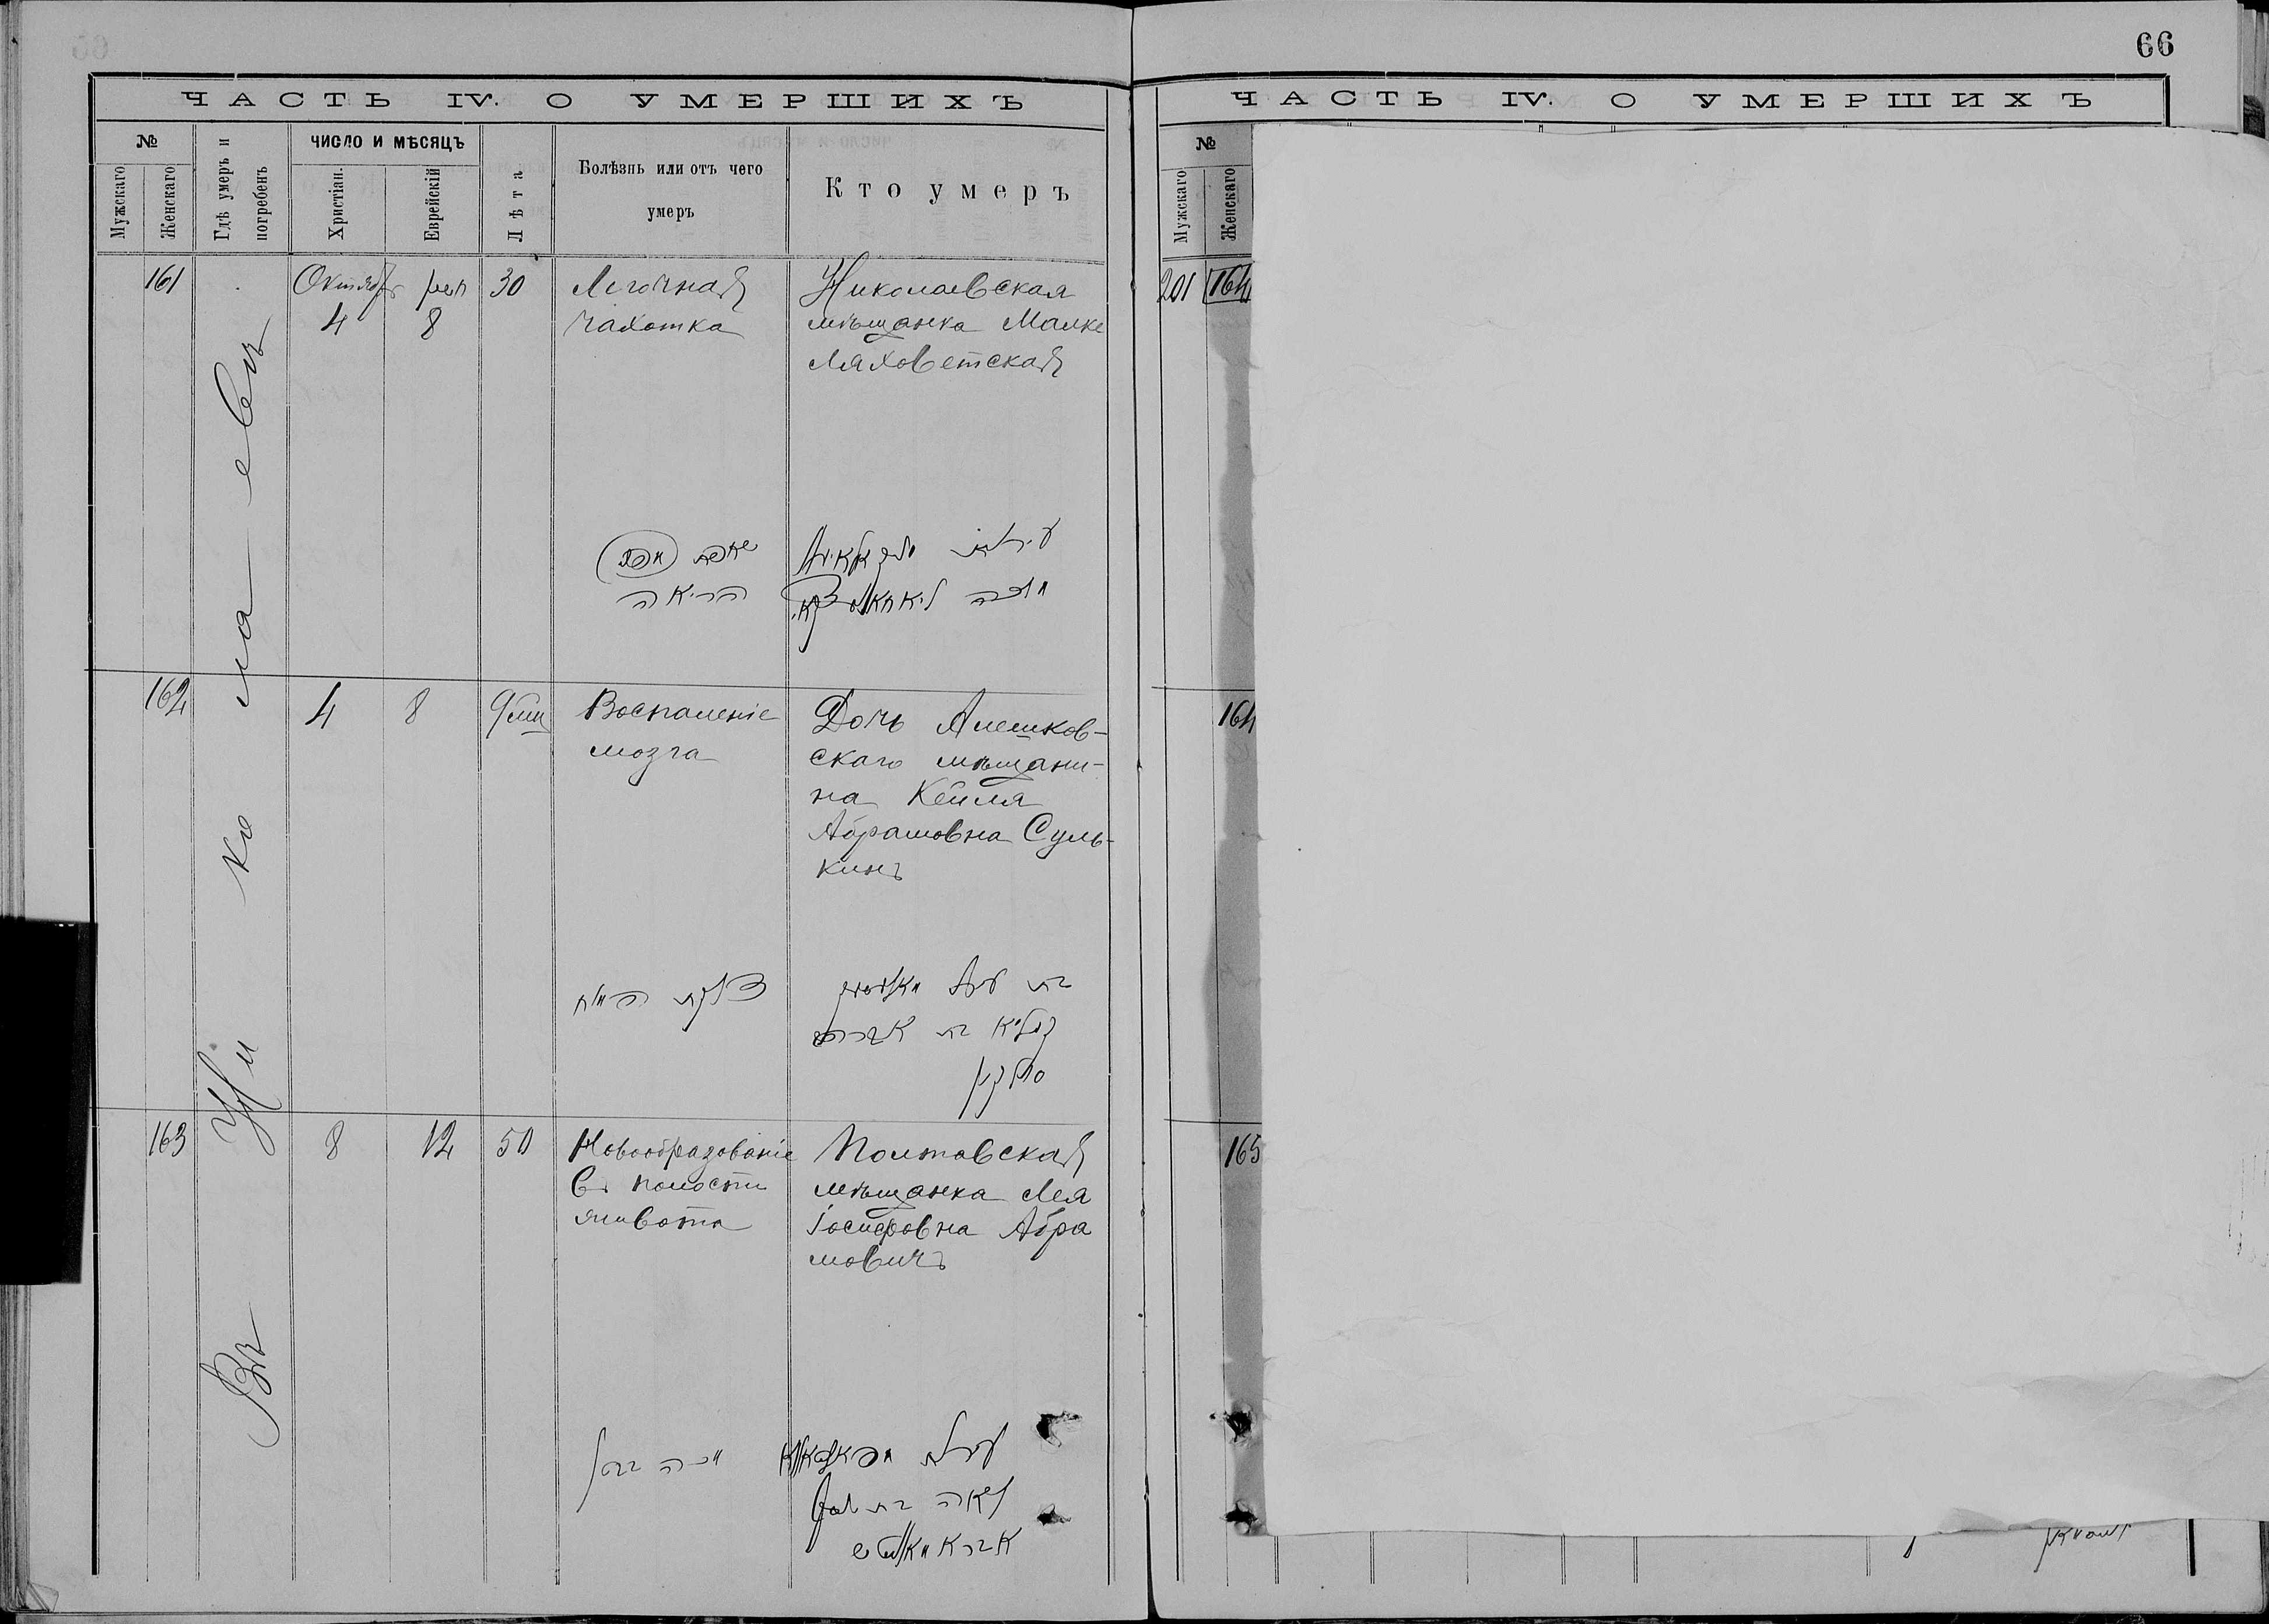 66
ЧАСТЬ IV. О УМЕРШИХЪ
№
Мужскаго
Женскаго
Гдѣ умеръ и погребенъ
ЧИСЛО И МѢСЯЦЪ
Христіан.
Еврейскій
Лѣта
Болѣзнь или отъ чего
умеръ
Кто умеръ
Въ Николаевъ
161
Октября
4
8
30
Легочная
чахотка
Николаевская
мѣщанка Малке
Ляховетская
הריאה
162
4
8
9 мц
Воспаленіе
мозга
Дочь Алешков-
скаго мѣщани-
на Кейля
Абрамовна Суль-
кинъ
דלקת המוח
סולקין
163
8
12
50
Новообразованіе
въ полости
живота
Полтавская
мѣщанка Лея
Іосифовна Абра
мовичъ
לאה בת יוסף
אבראמאוויטש
ЧАСТЬ IV. О УМЕРШИХЪ
№
Мужскаго
Женскаго
201
164
164
165